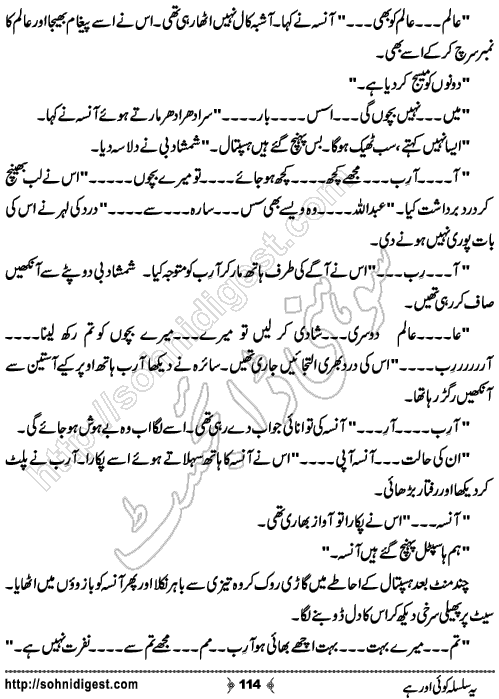 "عالم۔۔۔عالم کو بھی۔۔۔" آنسہ نے کہا۔ آشبہ کال نہیں اٹھا رہی تھی۔ اس نے اسے پیغام بھیجا اور عالم کا
نمبر سرچ کر کے اسے بھی۔
"دونوں کو میسج کر دیا ہے۔"
"میں۔۔۔نہیں بچوں گی۔۔۔اسس۔۔۔۔بار۔۔۔۔" سر ادھر ادھر مارتے ہوئے آنسہ نے کہا۔
"ایسا نہیں کہتے، سب ٹھیک ہوگا۔ بس پہنچ گئے ہیں ہسپتال۔" شمشاد بی نے دلاسہ دیا۔
"آ۔۔۔۔آرِب۔۔۔۔مجھے کچھ۔۔۔۔کچھ ہو جائے۔۔۔۔تو میرے بچوں۔۔۔۔۔" اس نے لب بھینچ
کر درد برداشت کیا۔ "عبداللہ۔۔۔۔وہ ویسے بھی سس۔۔۔۔سارہ۔۔۔۔سے۔۔۔۔" درد کی لہر نے اس کی
بات پوری نہیں ہونے دی۔
"آ۔۔۔رِب۔۔۔" اس نے آگے کی طرف ہاتھ مار کر آرِب کو متوجہ کیا۔ شمشاد بی دوپٹے سے آنکھیں
صاف کر رہی تھیں۔
"عا۔۔۔۔عالم دوسری۔۔۔۔شادی کر لیں تو میرے۔۔۔۔میرے بچوں کو تم رکھ لینا۔۔۔۔
آرررررِب۔۔۔۔" اس کی درد بھری التجائیں جاری تھیں۔ سائرہ نے دیکھا آرِب ہاتھ اوپر کیے آستین سے
آنکھیں رگڑ رہا تھا۔
"آرِب۔۔۔۔آرِ۔۔۔" آنسہ کی توانائی جواب دے رہی تھی۔ اسے لگا اب وہ بے ہوش ہو جائے گی۔
"ان کی حالت۔۔۔۔آنسہ آپی۔۔۔۔" اس نے آنسہ کا ہاتھ سہلاتے ہوئے اسے پکارا۔ آرِب نے پلٹ
کر دیکھا اور رفتار بڑھائی۔
"آنسہ۔۔۔" اس نے پکارا تو آواز بھاری تھی۔
"ہم ہاسپٹل پہنچ گئے ہیں آنسہ۔"
چند منٹ بعد ہسپتال کے احاطے میں گاڑی روک کر وہ تیزی سے باہر نکلا اور پھر آنسہ کو بازوؤں میں اٹھایا۔
سیٹ پر پھیلی سرخی دیکھ کر اس کا دل ڈوبنے لگا۔
"تم۔۔۔۔میرے بہت۔۔۔۔بہت اچھے بھائی ہو آرِب۔۔مم۔۔۔۔مجھے تم سے۔۔۔۔نفرت نہیں ہے۔۔"
http://sohnidigest.com
سوہنی ڈائجسٹ
http://sohnidigest.com
114
یہ سلسلہ کوئی اور ہے